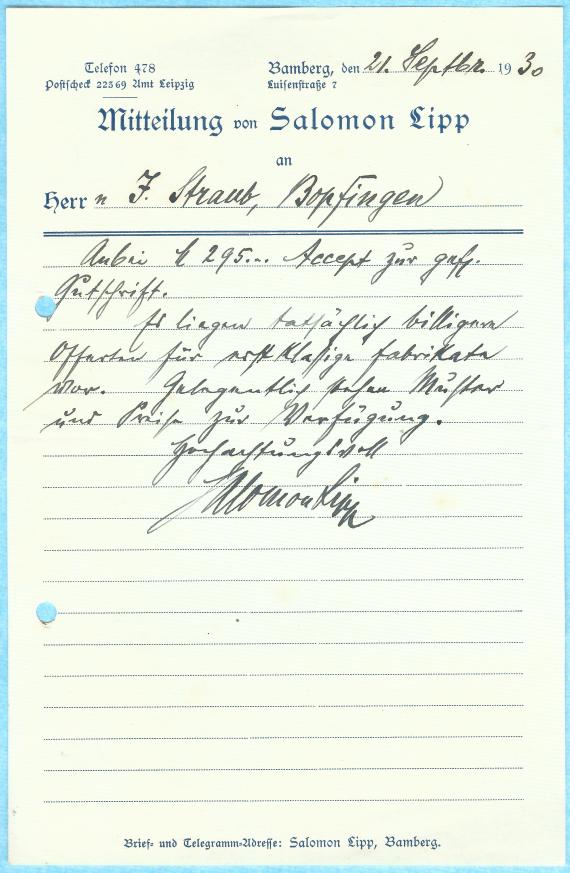 Telefon 478
Postscheck 22569 Amt Leipzig
Bamberg, den 21. Septbr. 1930
Luisenstraße 7
Mitteilung von Salomon Lipp
an
Herrn F. Straub, Bopfingen
Anbei 295.-- Accept zur gefl.
Gutschrift.
Es liegen tatsächlich billigere
Offerten für erstklassige Fabrikate
vor. Gelegentlich stehen Muster
und Preise zur Verfügung.
Hochachtungsvoll
Salomon Lipp
Brief- und Telegramm-Adresse: Salomon Lipp, Bamberg.